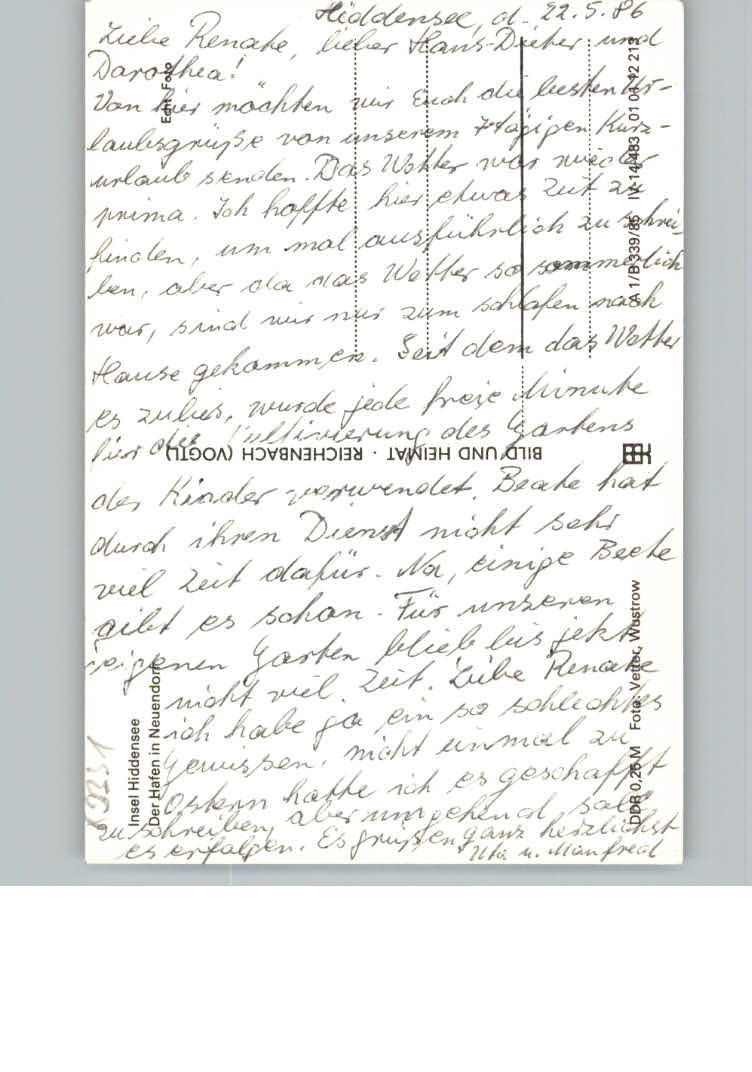 Hiddensee, d. 22.5.86
Liebe Renate, lieber Hans-Dieter und
Dorothea!
Von hier möchten wir Euch die besten Ur-
laubsgrüße von unserem 7tägigen Kurz-
urlaub senden. Das Wetter war wieder
prima. Ich hoffte hier etwas Zeit zu
finden, um mal ausführlich zu schrei-
ben, aber da das Wetter so sommerlich
war, sind wir nur zum schlafen nach
Hause gekommen. Seit dem das Wetter
es zulies, wurde jede freie Minute
für die Kultivierung des Gartens
der Kinder verwendet. Beate hat
durch ihren Dienst nicht sehr
viel Zeit dafür. Na, einige Beete
gibt es schon. Für unseren
eigenen Garten blieb bis jetzt
nicht viel Zeit. Liebe Renate
ich habe ja ein so schlechtes
Gewissen, nicht einmal zu
Ostern hatte ich es geschafft
zu schreiben, aber umgehend soll
es erfolgen. Es grüßen ganz herzlichst
Uta u. Manfred
Echt Foto
A 1/B 339/85 IV-14-483 01 01 12 213
BILD UND HEIMAT · REICHENBACH (VOGTL)
Insel Hiddensee
Der Hafen in Neuendorf
DDR 0,25 M Foto: Vetter, Wustrow